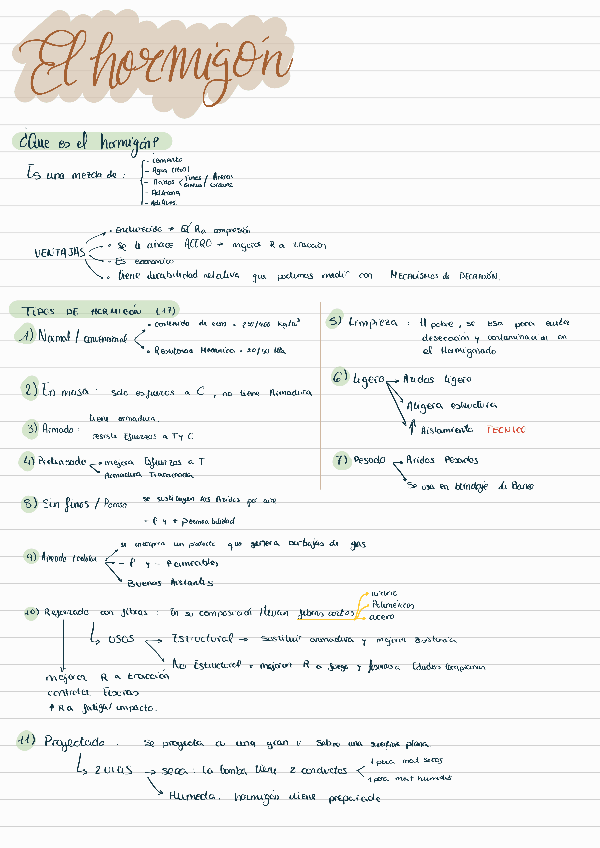 El hormigón
¿Que es el hormigón?
Es una mezcla de:
- Cemento
- Agua
- Áridos Finos / Arenas
- Aditivos
VENTAJAS
• Endurecido → R a compresión
• Se le añade ACERO → mejora R a tracción
- Es económico
• tiene durabilidad relativa que podemos medir con MECANISMOS DE
TIPOS DE HORMIGÓN (17)
1) Normal / convencional
• contenido de cem = 200/400 kg/m³
• Resistencia Mecánica =
2) En masa: solo esfuerzos a C, no tiene Armadura
3) Armado:
tiene armadura.
resiste Esfuerzos a T y C
4) Pretensado
mejora Esfuerzos a T
Armadura Traccionada
5) Limpieza: H pobre, se usa para evitar
desecación y contaminación en
el Hormigonado
6) Ligero
Áridos ligero
Aligera estructura
↑ Aislamiento TERMICO
7) Pesado
Áridos Pesados
Se usa en blindaje de
8) Sin finos / Poroso
se sustituyen los Áridos por aire
- ρ y + permeabilidad
9) Aireado / celular
se incorpora un producto que genera burbujas de gas
- ρ y - Permeables
Buenos Aislantes
10) Reforzado con fibras: En su composición llevan fibras cortas
vidrio
Poliméricas
acero
USOS
Estructural → sustituir armadura y mejorar
No Estructural → mejoran R a fuego y
mejorar R a tracción
controlar fisuras
↑ R a fatiga/impacto.
11) Proyectado. Se proyecta a una gran v sobre una superficie plana
2 VIAS
seca: la bomba tiene 2 conductos
1 para mat secos
1 para mat humedos
Humeda: hormigón viene preparado